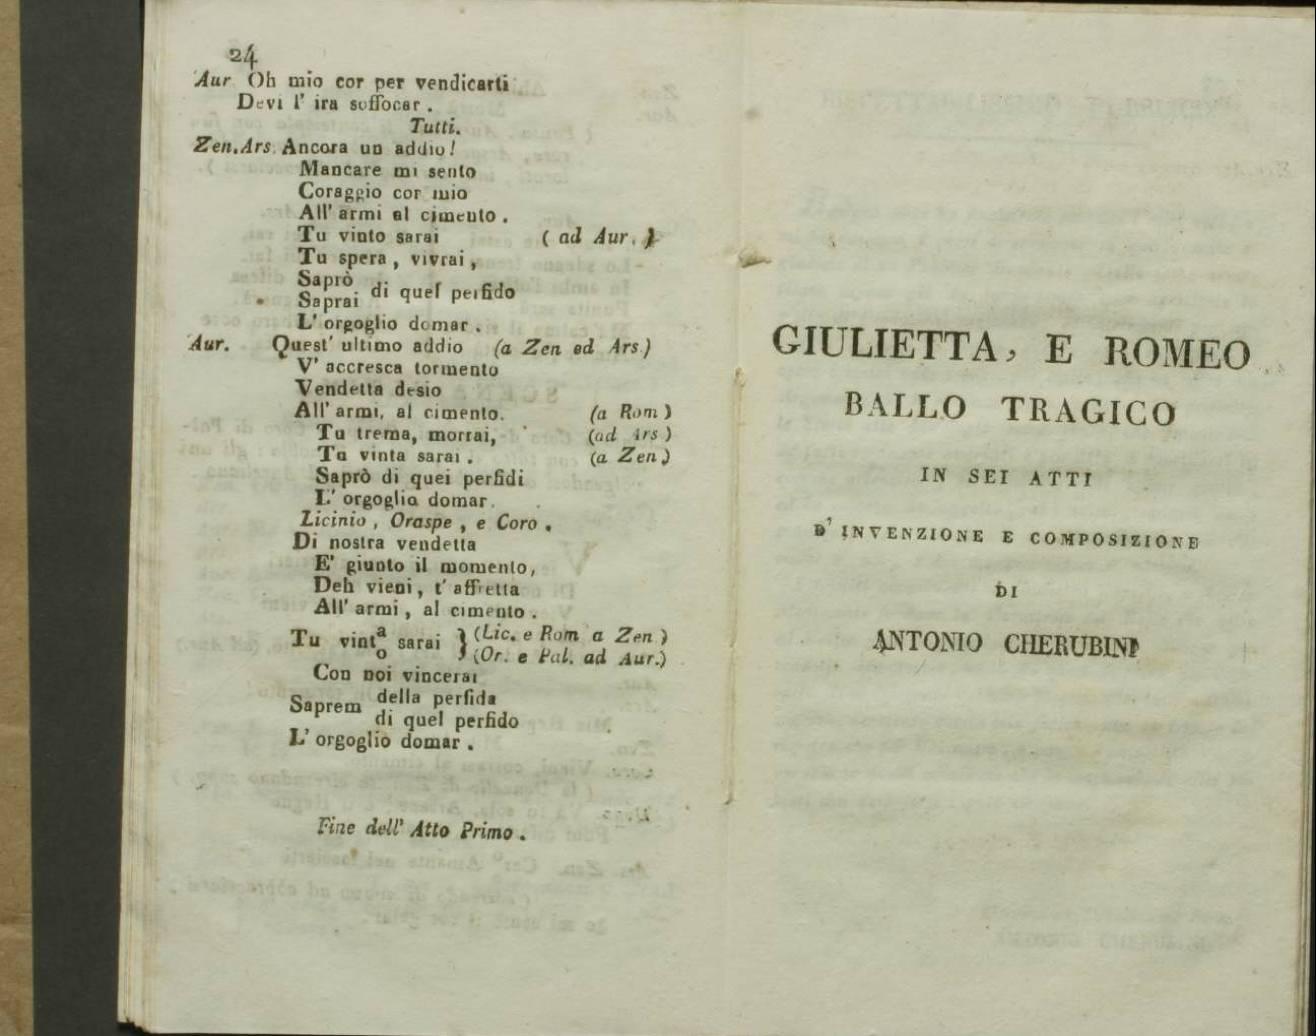 24
Aur Oh mio cor per vendicarti
Devi l' ira suffocar .
Tutti.
Zen. Ars. Ancora un addio!
Mancare mi sento
Coraggio cor mio
All' armi al cimento .
Tu vinto sarai ( ad Aur. )
Tu spera , vivrai ,
Saprò
Saprai di quel perfido
L' orgoglio domar .
Aur. Quest' ultimo addio (a Zen ed Ars.)
V' accresca tormento
Vendetta desio
All' armi, al cimento. (a Rom)
Tu trema, morrai, (ad Ars)
Tu vinta sarai . (a Zen)
Saprò di quei perfidi
L' orgoglio domar.
Licinio , Oraspe , e Coro .
Di nostra vendetta
E' giunto il momento,
Deh vieni, t' affretta
All' armi, al cimento .
Tu vint a o sarai } (Lic. e Rom a Zen )
(Or. e Pal. ad Aur.)
Con noi vincerai
Saprem della perfida
di quel perfido
L' orgoglio domar .
Fine dell' Atto Primo .
GIULIETTA, E ROMEO
BALLO TRAGICO
IN SEI ATTI
D' INVENZIONE E COMPOSIZIONE
DI
ANTONIO CHERUBINI